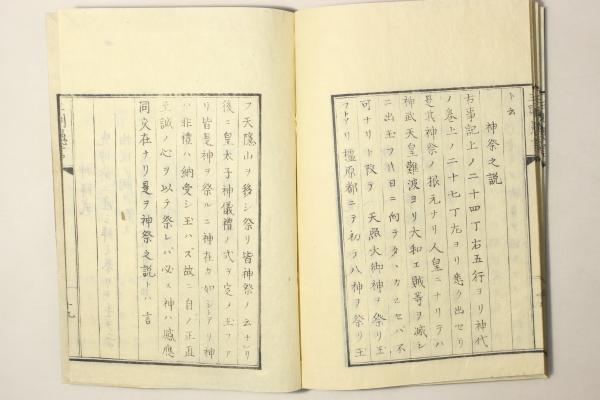 ト云
神祭之説
古事記上ノ二十四丁右五行ヨリ神代
ノ巻上ノ二十七丁左ヨリ悉ク出セリ
是其神祭ノ根元ナリ人皇ニナリテハ
神武天皇難波ヨリ大和エ賊等ヲ滅シ
ニ出玉フ日ニ向ヲタヽカエセバ不
可ナリト改テ 天照大御神ヲ祭リ玉
フトアリ橿原都ニテ初テ八神ヲ祭リ玉
フ天隠山ヲ移シ祭リ皆神祭ノ云ナリ
後ニ皇太子神儀禮ノ式ヲ定メ玉フア
リ皆是神ヲ祭ルニ神在カ如シトアリ神
ハ非禮ハ納受シ玉ハズ故ニ自ノ正直
至誠ノ心ヲ以テ祭レバ必ス神ハ感應
同交在ナリ是ヲ神祭之説トハ言
十九